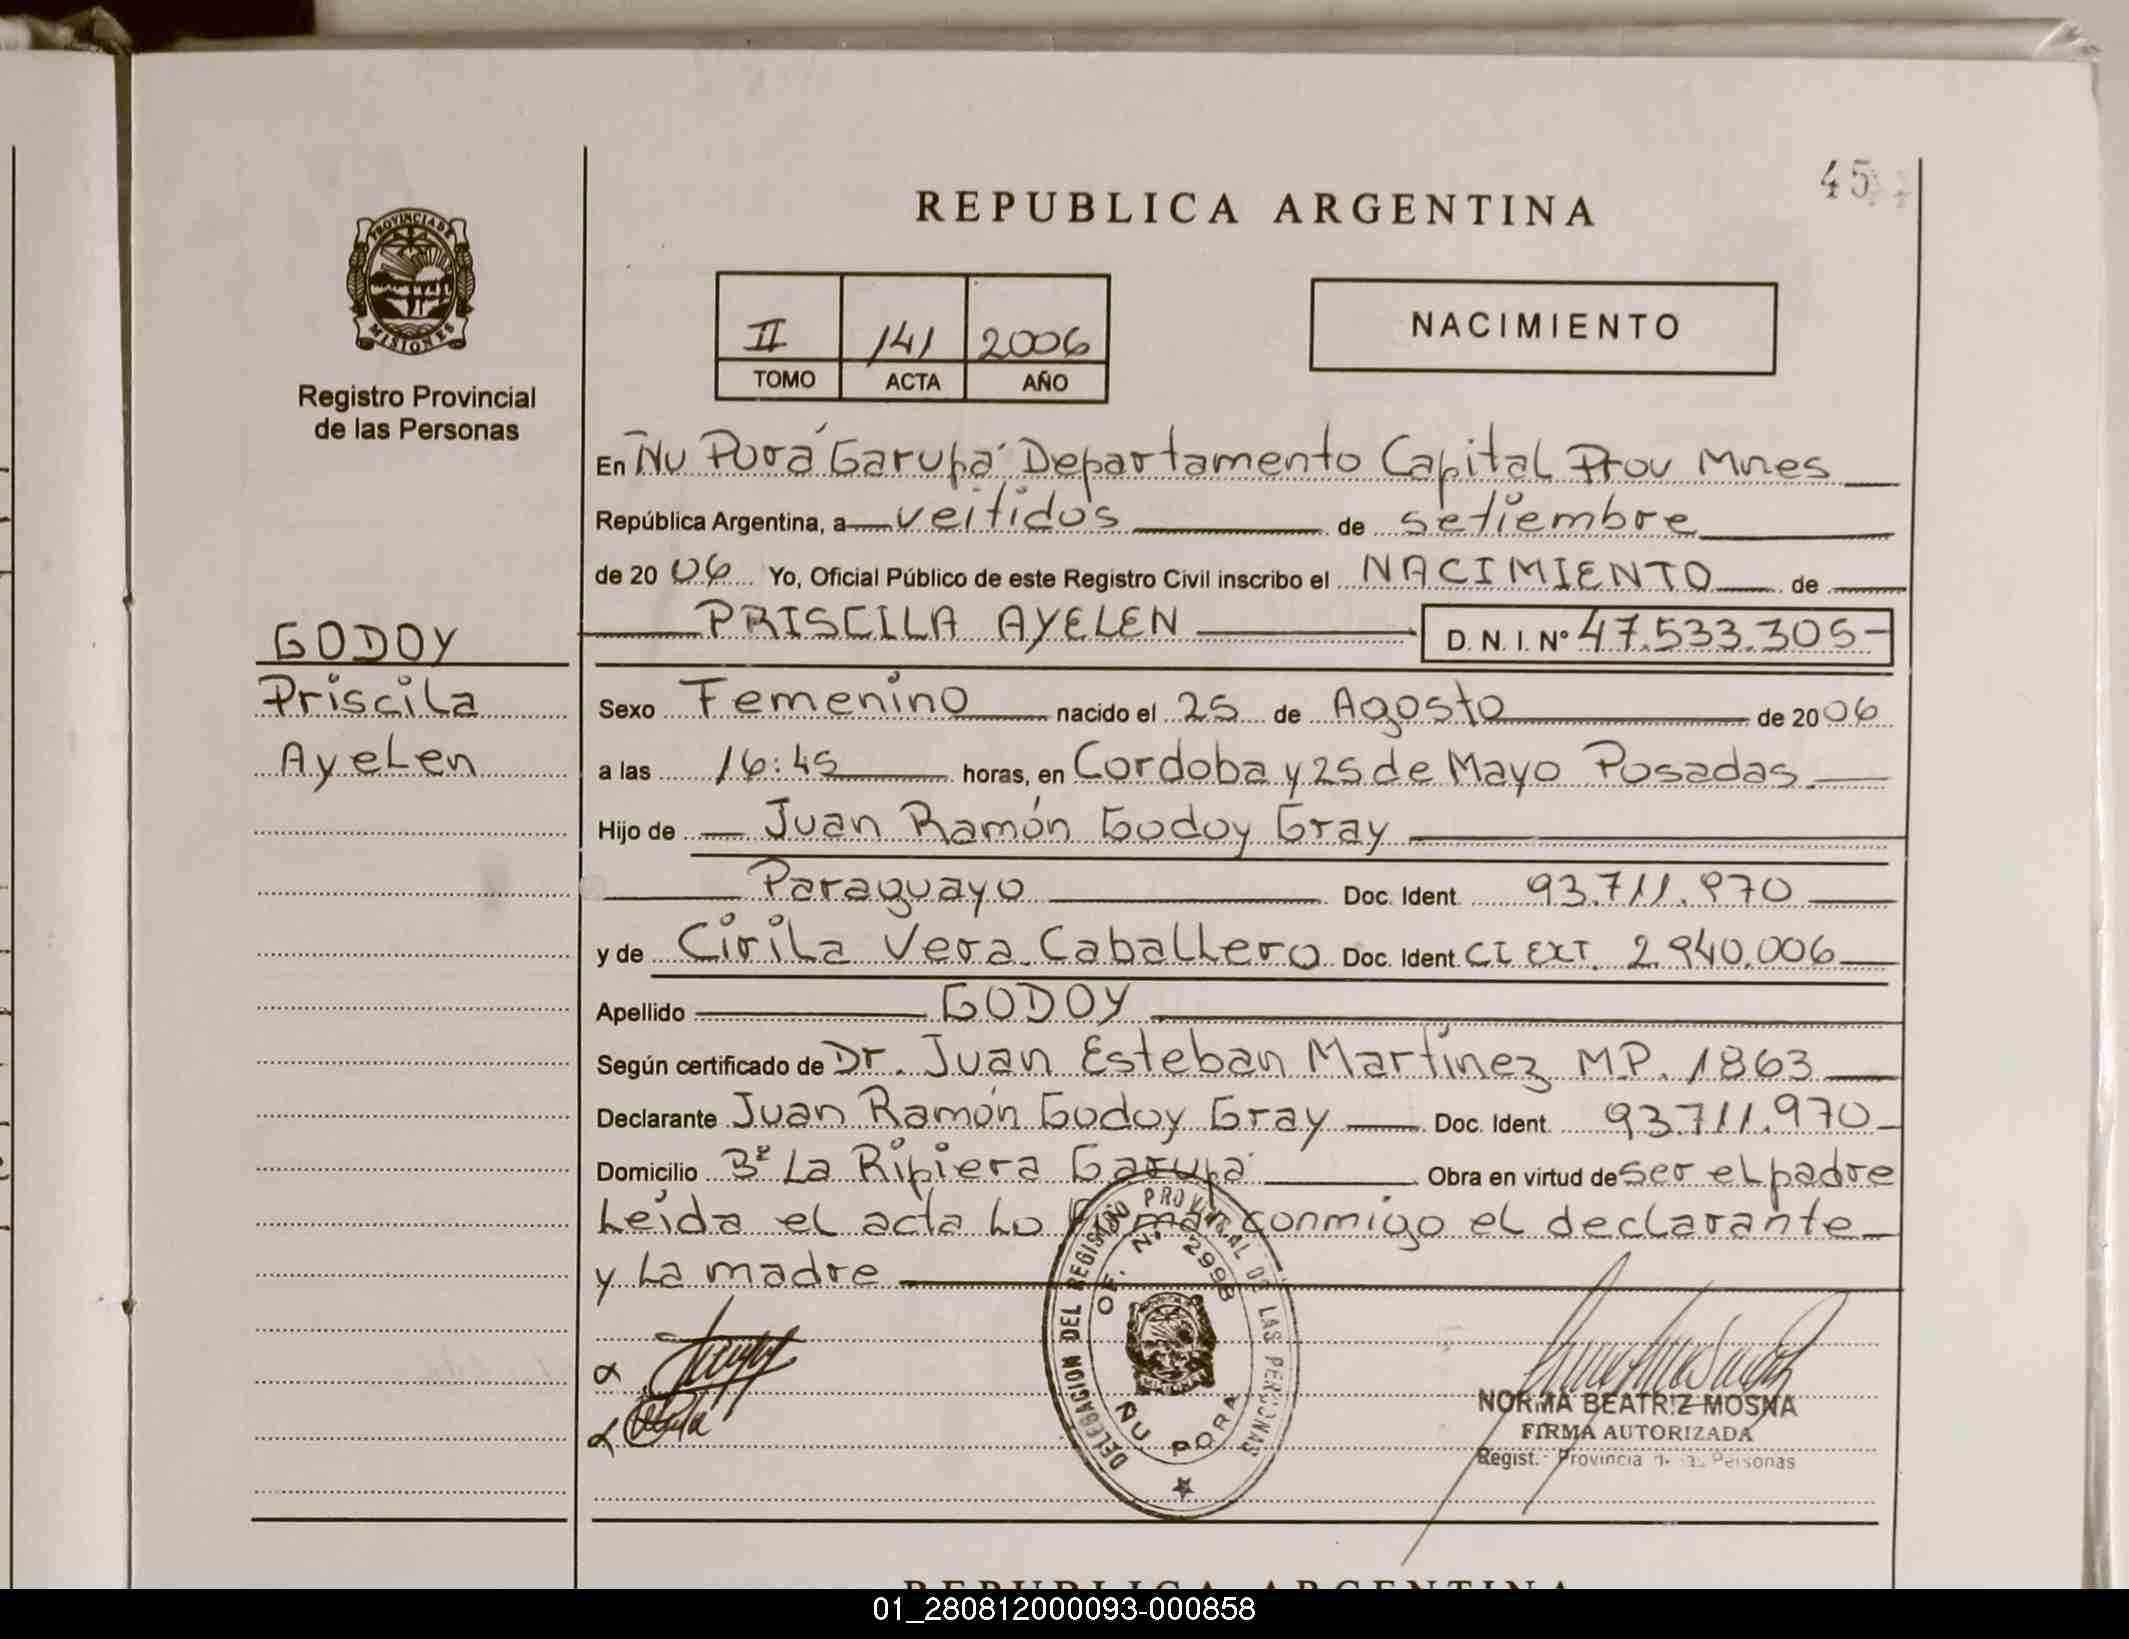 45
REPUBLICA ARGENTINA
PROVINCIA DE
MISIONES
Registro Provincial
de las Personas
II 141 2006
TOMO ACTA AÑO
NACIMIENTO
En Ñu Porá Garupá Departamento Capital Prov Mnes
República Argentina, a veitidos de setiembre
de 2006 Yo, Oficial Público de este Registro Civil inscribo el NACIMIENTO de
PRISCILA AYELEN D. N. I. Nº 47.533.305-
GODOY
Priscila
Ayelen
Sexo Femenino nacido el 25 de Agosto de 2006
a las 16:45 horas, en Cordoba y 25 de Mayo Posadas.
Hijo de Juan Ramón Godoy Gray
Paraguayo Doc. Ident. 93.711.970
y de Cirila Vera Caballero Doc. Ident. CI EXT. 2.940.006
Apellido GODOY
Según certificado de Dr. Juan Esteban Martínez MP. 1863
Declarante Juan Ramón Godoy Gray Doc. Ident. 93.711.970
Domicilio Bº La Ripiera Garupá Obra en virtud de ser el padre
Leida el acta Lo firman conmigo el declarante
y La madre
DELEGACION DEL REGISTRO PROVINCIAL DE LAS PERSONAS
OF. Nº 2998
ÑU PORA
NORMA BEATRIZ MOSNA
FIRMA AUTORIZADA
Regist. Provincial de las Personas
REPUBLICA ARGENTINA
01_280812000093-000858